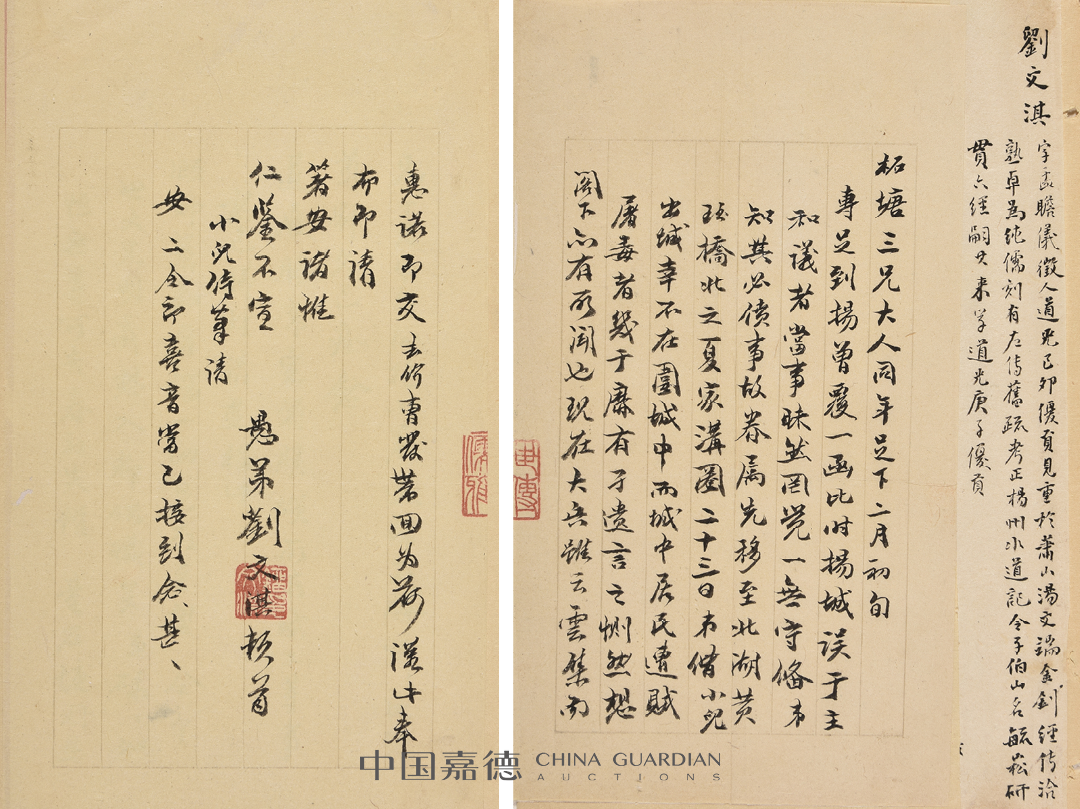 劉文淇
字孟瞻儀徵人道光己卯優貢見重於蕭山湯文端金釗經傳洽
熟卓為純儒刻有左傳舊疏考正楊州水道記令子伯山名毓崧研
貫六經嗣其來學道光庚子優貢
柘塘三兄大人同年足下二月初旬
專足到揚曾覆一函比時揚城误于主
和議者當事昧然罔覺一無守俻弟
知其必僨事故眷属先移至北湖黄
珏橋北之夏家溝圈二十三日弟偕小兒
出城幸不在圍城中而城中居民遭賊
屠毒者幾于靡有孑遗言之惻然想
閣下亦有所聞也现在大兵雖云雲集而
惠諾即交去价曹發带回为荷谨此奉
布即請
箸安諸惟
仁鉴不宣
愚弟劉文淇頓首
小兒侍筆請
安 二令郎喜音當已接到念甚、
中国嘉德 CHINA GUARDIAN
AUCTIONS